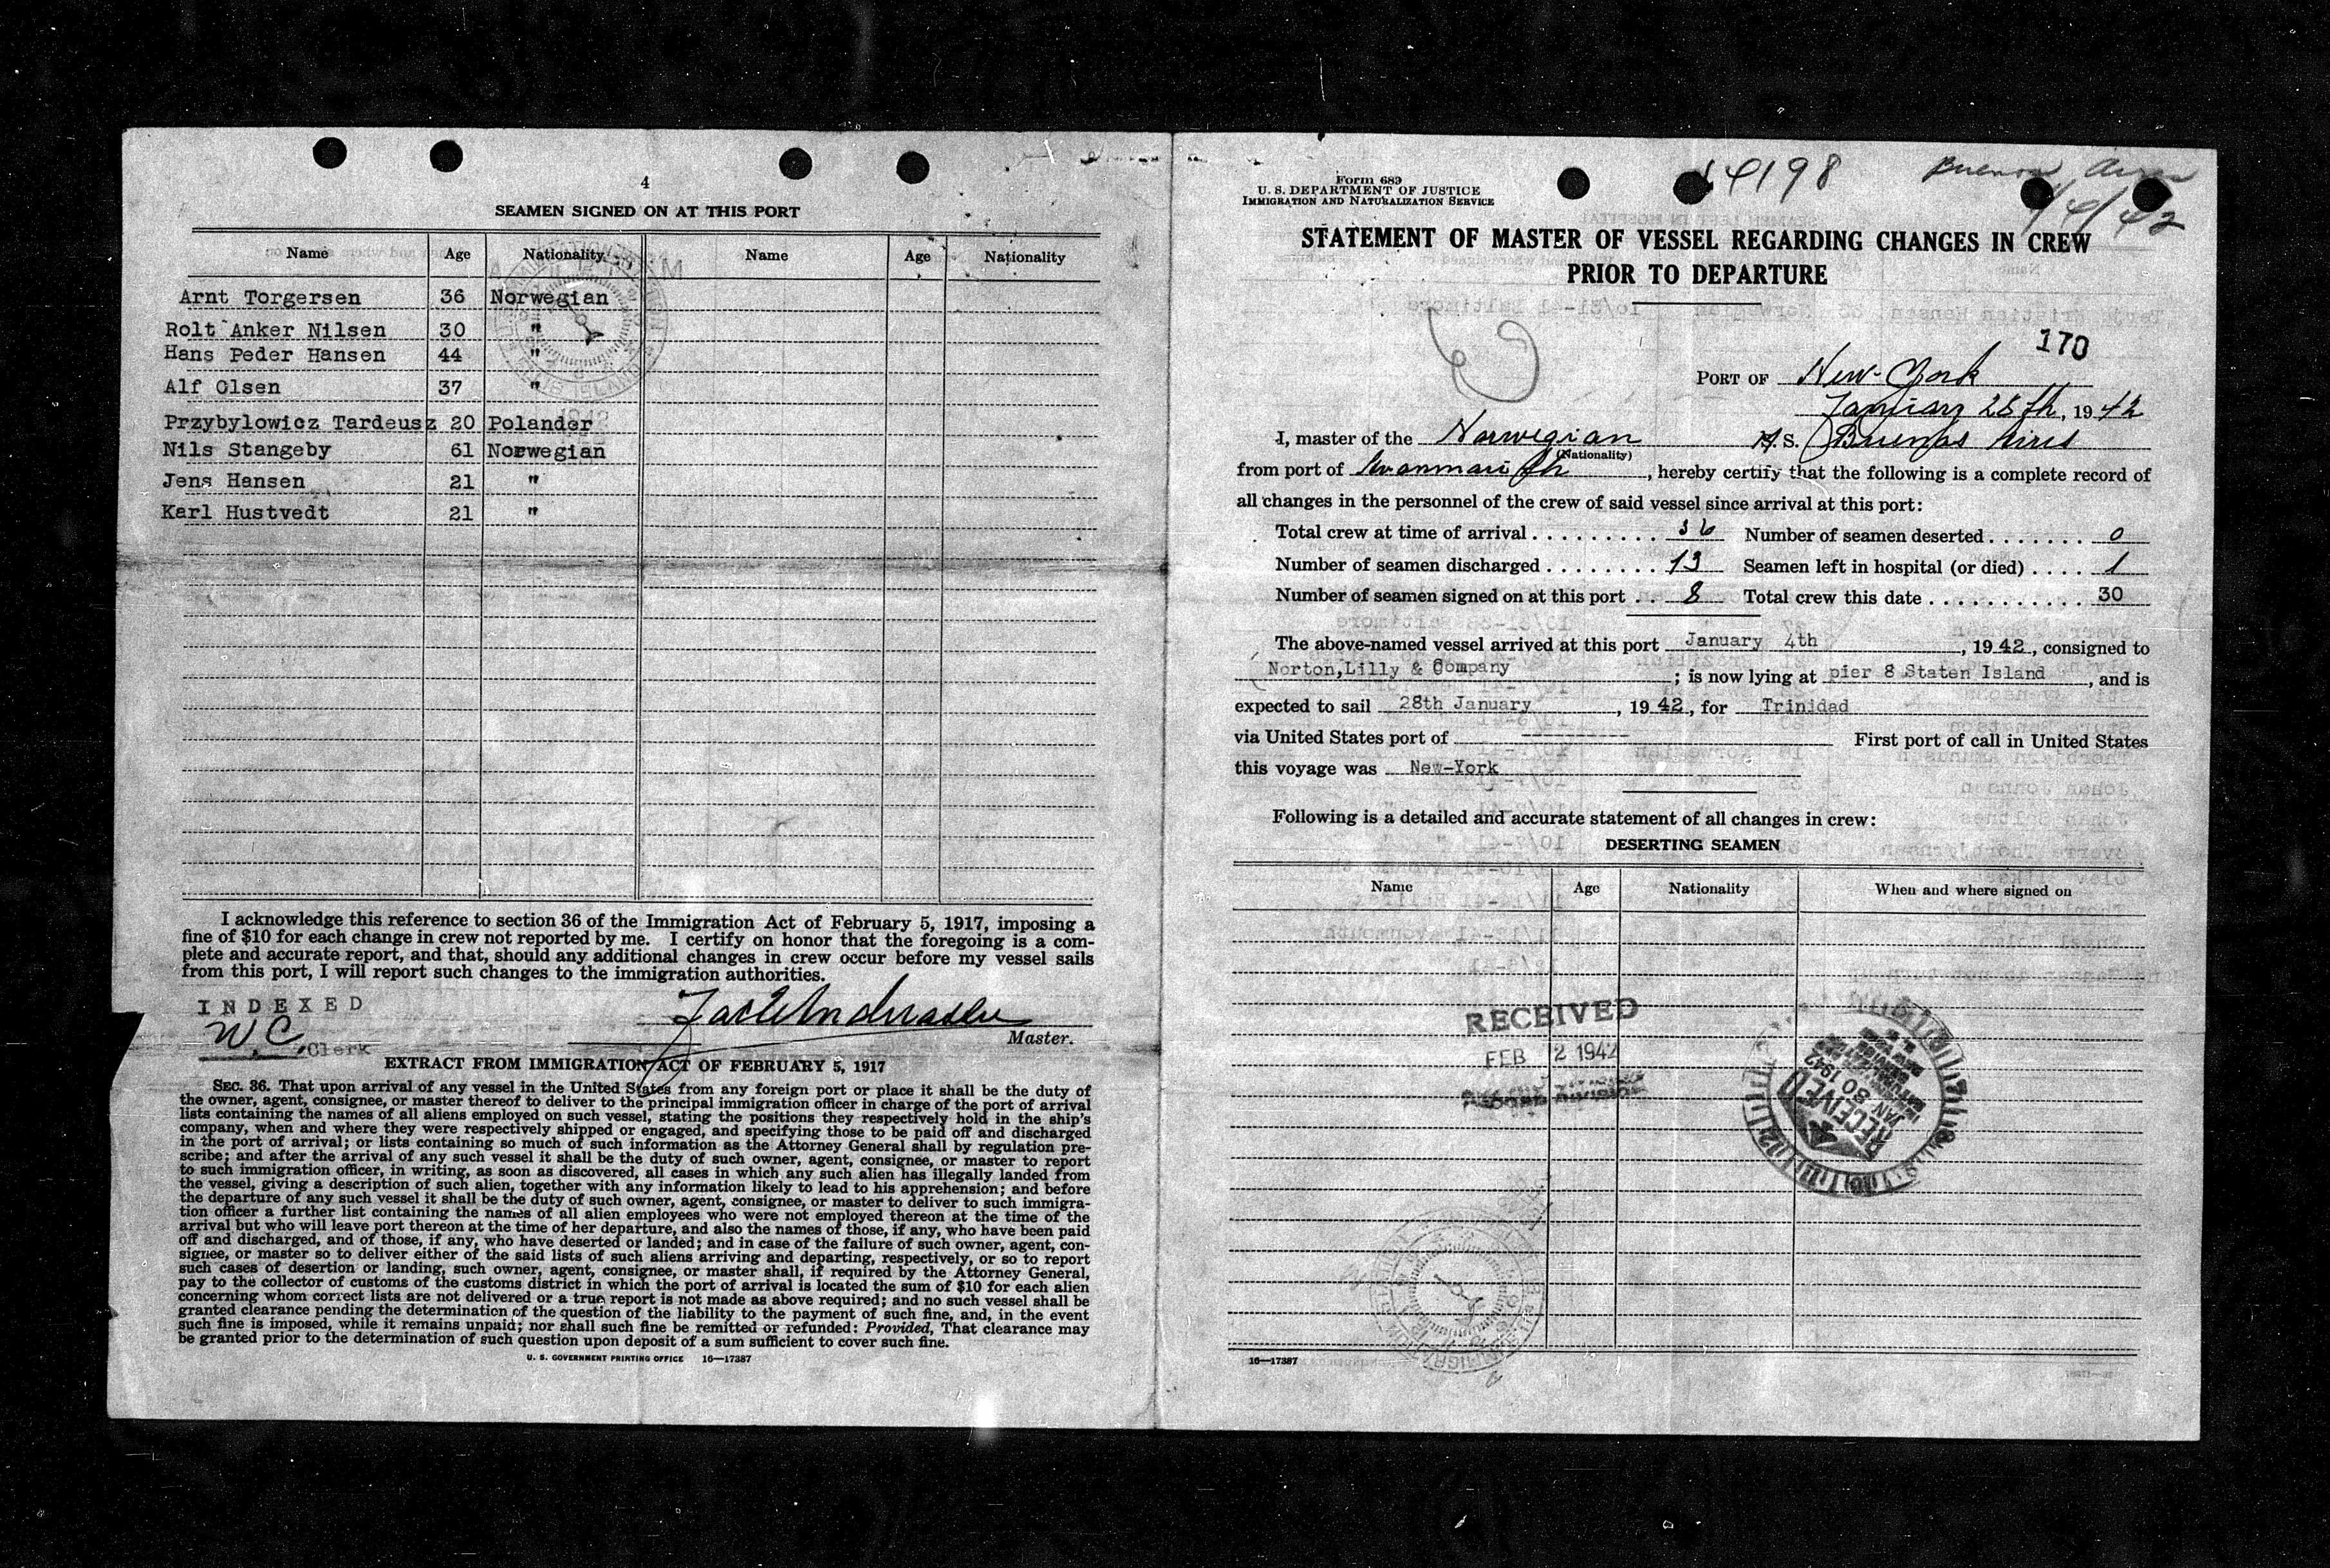 4
SEAMEN SIGNED ON AT THIS PORT
Name Age Nationality Name Age Nationality
Arnt Torgersen 36 Norwegian
Rolt Anker Nilsen 30 "
Hans Peder Hansen 44 "
Alf Olsen 37 "
Przybylowicz Tardeusz 20 Polander
Nils Stangeby 61 Norwegian
Jens Hansen 21 "
Karl Hustvedt 21 "
I acknowledge this reference to section 36 of the Immigration Act of February 5, 1917, imposing a
fine of $10 for each change in crew not reported by me. I certify on honor that the foregoing is a com-
plete and accurate report, and that, should any additional changes in crew occur before my vessel sails
from this port, I will report such changes to the immigration authorities.
INDEXED
W.C. Clerk
Master.
EXTRACT FROM IMMIGRATION ACT OF FEBRUARY 5, 1917
SEC. 36. That upon arrival of any vessel in the United States from any foreign port or place it shall be the duty of
the owner, agent, consignee, or master thereof to deliver to the principal immigration officer in charge of the port of arrival
lists containing the names of all aliens employed on such vessel, stating the positions they respectively hold in the ship's
company, when and where they were respectively shipped or engaged, and specifying those to be paid off and discharged
in the port of arrival; or lists containing so much of such information as the Attorney General shall by regulation pre-
scribe; and after the arrival of any such vessel it shall be the duty of such owner, agent, consignee, or master to report
to such immigration officer, in writing, as soon as discovered, all cases in which any such alien has illegally landed from
the vessel, giving a description of such alien, together with any information likely to lead to his apprehension; and before
the departure of any such vessel it shall be the duty of such owner, agent, consignee, or master to deliver to such immigra-
tion officer a further list containing the names of all alien employees who were not employed thereon at the time of the
arrival but who will leave port thereon at the time of her departure, and also the names of those, if any, who have been paid
off and discharged, and of those, if any, who have deserted or landed; and in case of the failure of such owner, agent, con-
signee, or master so to deliver either of the said lists of such aliens arriving and departing, respectively, or so to report
such cases of desertion or landing, such owner, agent, consignee, or master shall, if required by the Attorney General,
pay to the collector of customs of the customs district in which the port of arrival is located the sum of $10 for each alien
concerning whom correct lists are not delivered or a true report is not made as above required; and no such vessel shall be
granted clearance pending the determination of the question of the liability to the payment of such fine, and, in the event
such fine is imposed, while it remains unpaid; nor shall such fine be remitted or refunded: Provided, That clearance may
be granted prior to the determination of such question upon deposit of a sum sufficient to cover such fine.
U. S. GOVERNMENT PRINTING OFFICE 16—17387
Form 689
U. S. DEPARTMENT OF JUSTICE
IMMIGRATION AND NATURALIZATION SERVICE
14198
Buenos Aires
1/4/42
STATEMENT OF MASTER OF VESSEL REGARDING CHANGES IN CREW
PRIOR TO DEPARTURE
170
PORT OF New-York
January 28th, 1942
I, master of the Norwegian M.S. Buenos Aires
(Nationality)
from port of , hereby certify that the following is a complete record of
all changes in the personnel of the crew of said vessel since arrival at this port:
Total crew at time of arrival . . . . . . . . . 36 Number of seamen deserted . . . . . . . 0
Number of seamen discharged . . . . . . . . 13 Seamen left in hospital (or died) . . . . 1
Number of seamen signed on at this port . . 8 Total crew this date . . . . . . . . . . . 30
The above-named vessel arrived at this port January 4th, 1942, consigned to
Norton,Lilly & Company ; is now lying at pier 8 Staten Island, and is
expected to sail 28th January, 1942, for Trinidad
via United States port of ---------- First port of call in United States
this voyage was New-York
Following is a detailed and accurate statement of all changes in crew:
DESERTING SEAMEN
Name Age Nationality When and where signed on
RECEIVED
FEB 2 1942
RECEIVED
JAN 30 1942
16—17387